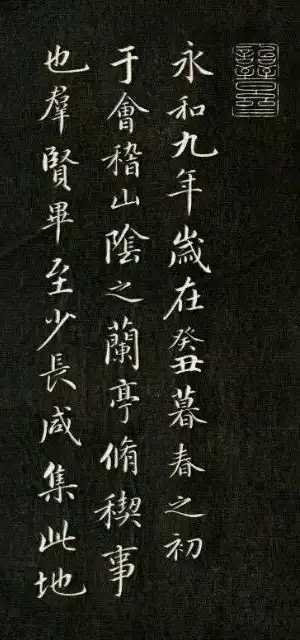 永和九年歲在癸丑暮春之初
于會稽山陰之蘭亭脩稧事
也羣賢畢至少長咸集此地